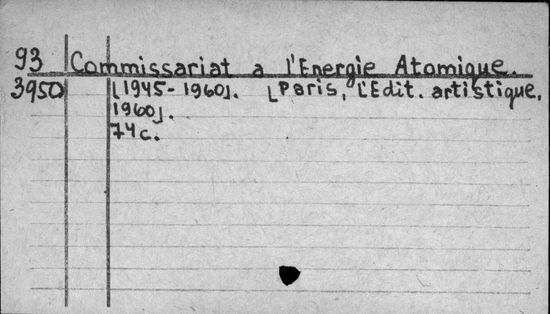 93 Commissariat a l'Energie Atomique.
3950 [1945-1960]. [Paris, L'Edit. artistique,
1960].
74c.